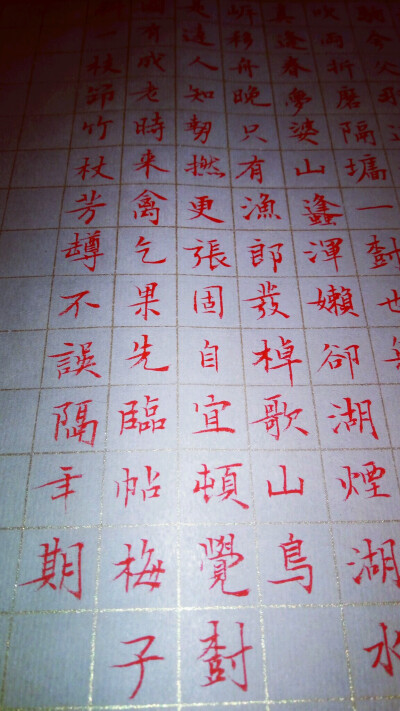 吹雨折磨隔墻一樹也
真逢春夢婆山蠭渾嬾卻湖煙湖水
移舟晚只有漁郎發棹歌山鳥
是達人知勢撚更張固自宜頓覺樹
園有成老時來禽乞果先臨帖梅子
一枝笻竹杖芳罇不誤隔年期